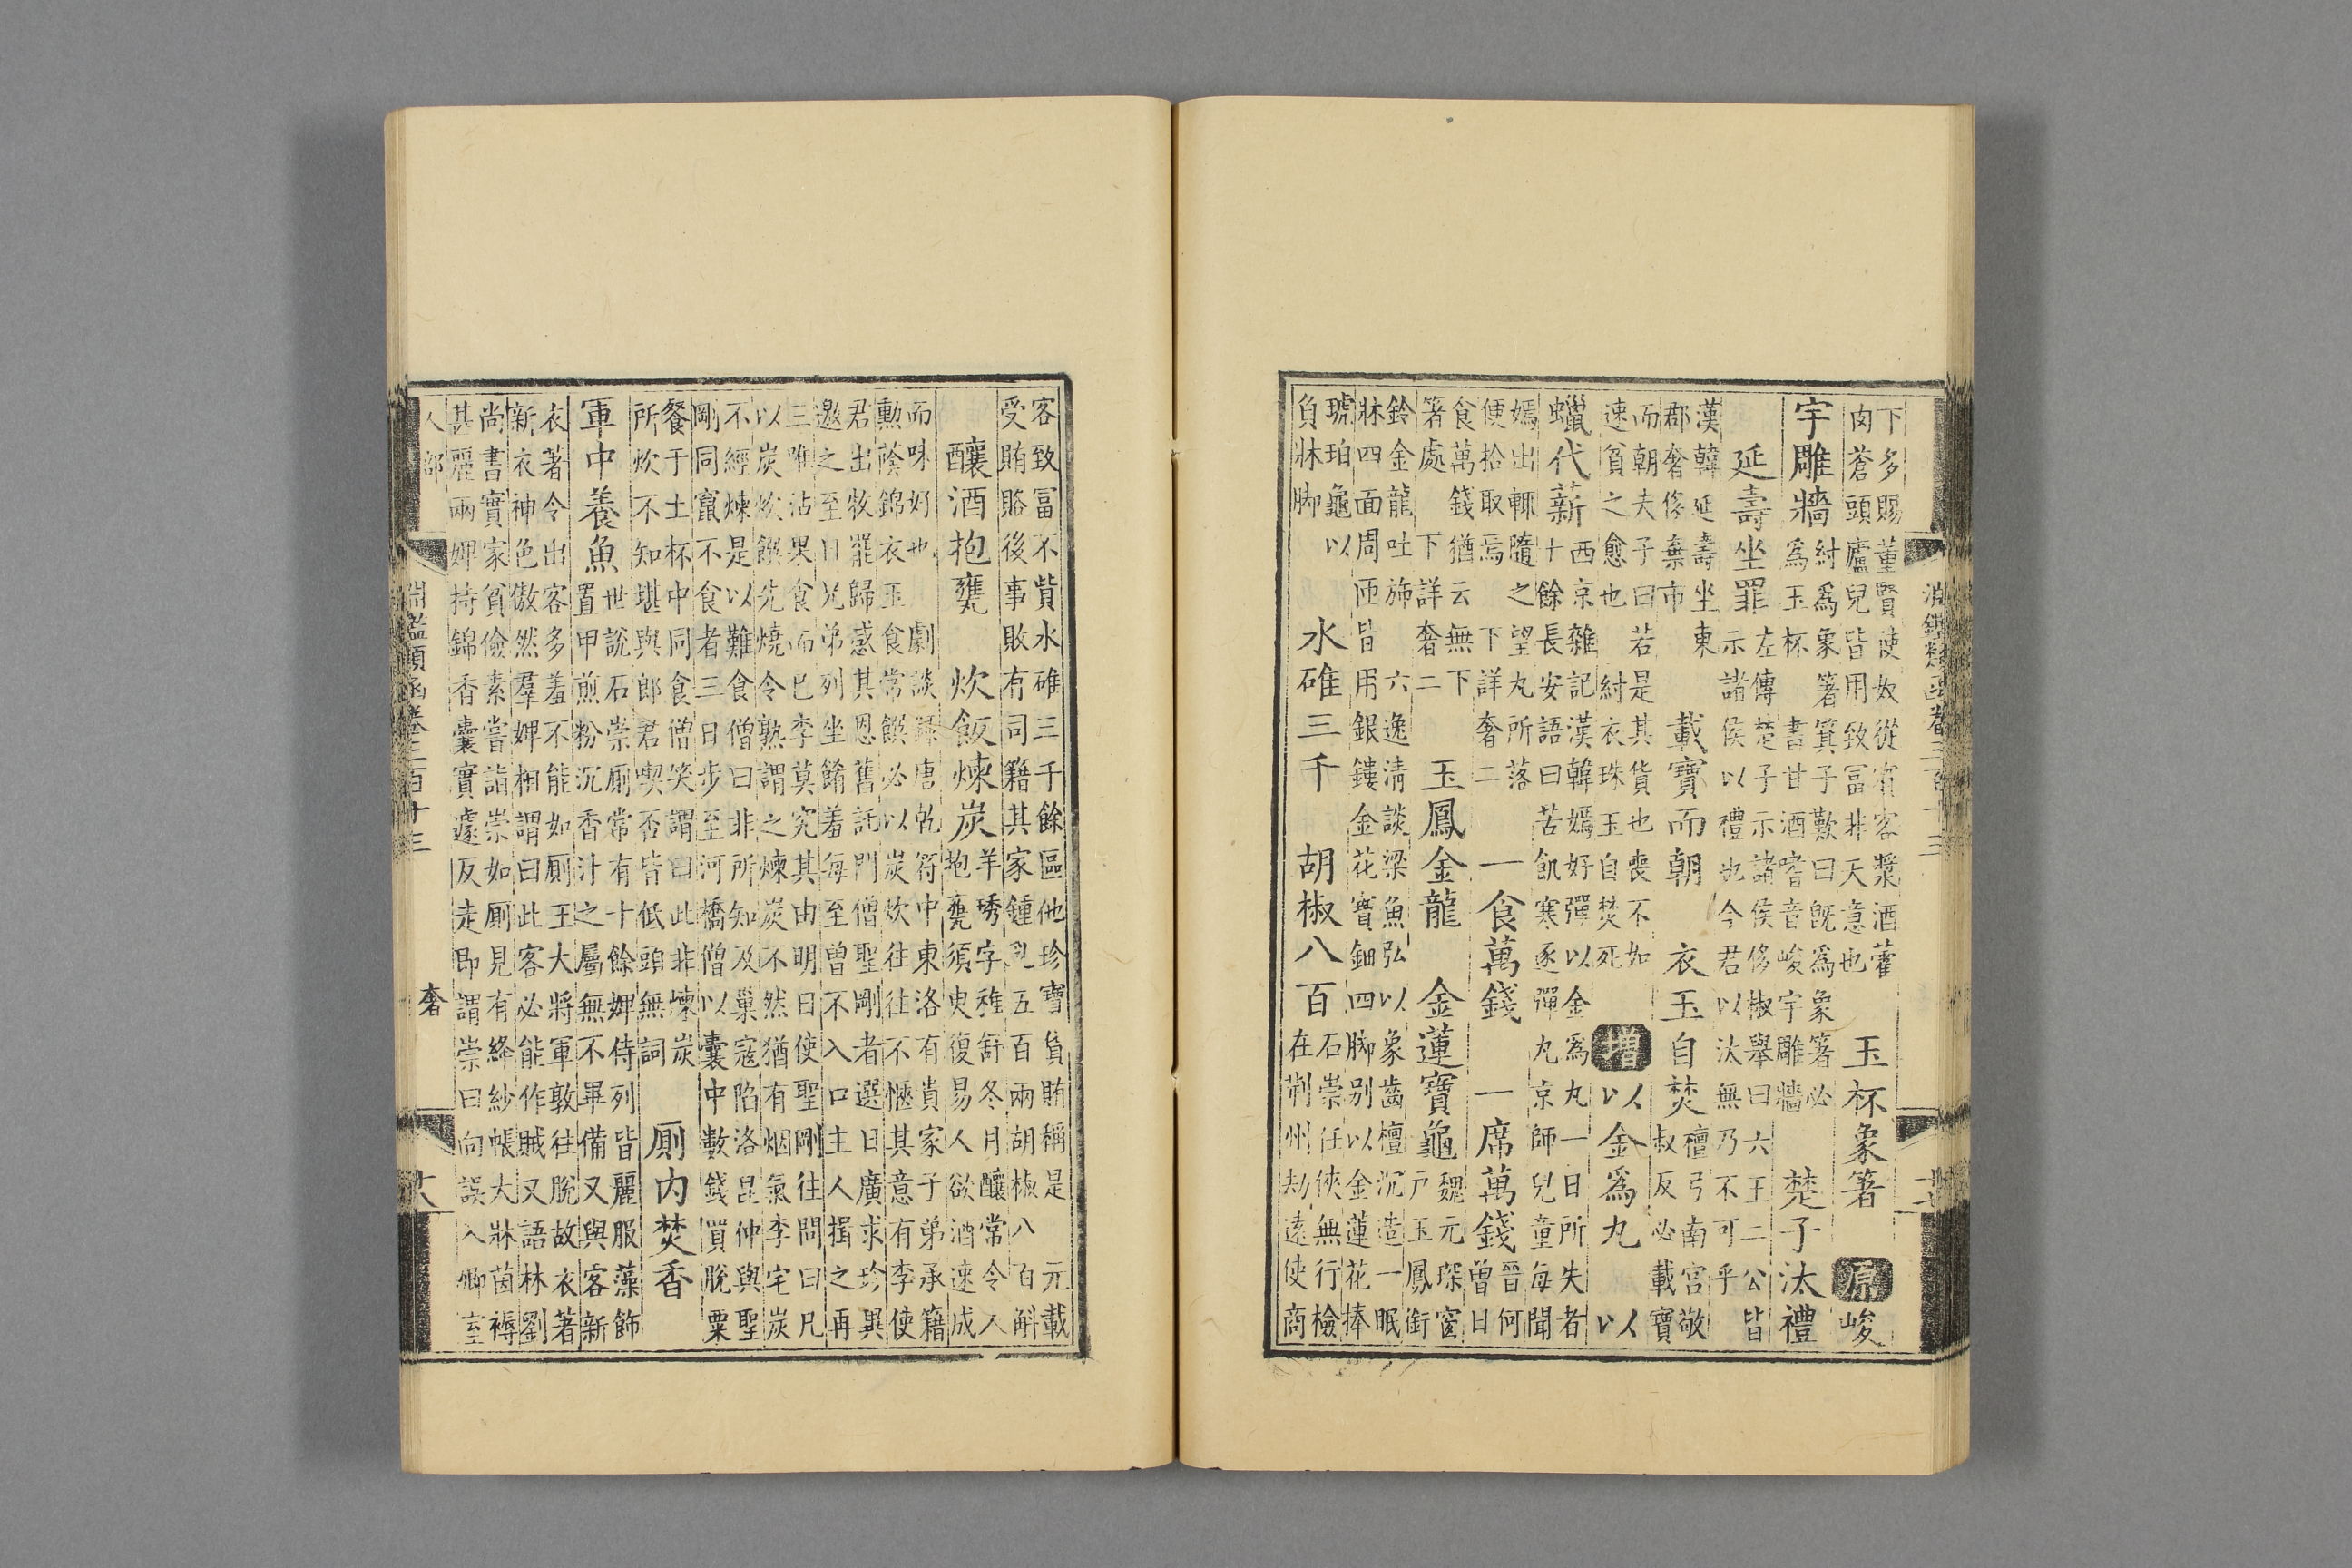 淵鑑類函卷三百十三 十七
下多賜董賢使奴從賓客漿酒藿
肉蒼頭廬兒皆用致冨非天意也
玉杯象箸 原 峻
宇雕牆
紂爲象箸箕子歎曰旣爲象箸必
爲玉杯 書甘酒嗜音峻宇雕牆
楚子汰禮
延壽坐罪
左傳楚子示諸侯侈椒舉曰六王二公皆
示諸侯以禮也今君以汰無乃不可乎
漢韓延壽坐東
郡奢侈棄市
載寶而朝 衣玉自焚
檀弓南宮敬
叔反必載寶
而朝夫子曰若是其貨也喪不如
速貧之愈也 紂衣珠玉自焚死
增 以金爲丸 以
蠟代薪
西京雜記漢韓嫣好彈以金爲丸一日所失者
十餘長安語曰苦飢寒逐彈丸京師兒童每聞
嫣出輒隨之望丸所落
便拾取焉 下詳奢二
一食萬錢 一席萬錢
晉何
曾日
食萬錢猶云無下
箸處 下詳奢二
玉鳳金龍 金蓮寶龜
魏元琛窗
戸玉鳳銜
鈴金龍吐旆 六逸清談梁魚弘以象齒檀沉造一眠
牀四面周匝皆用銀鏤金花寶鈿四脚别以金蓮花捧
琥珀龜以
負牀脚
水碓三千 胡椒八百
石崇任俠無行檢
在荆州劫遠使商
客致冨不貲水碓三千餘區他珍寶貨賄稱是 元載
受賄賂後事敗有司籍其家鍾乳五百兩胡椒八百斛
釀酒抱甕 炊飯煉炭
羊琇字稚舒冬月釀常令人
抱甕須臾復易人欲酒速成
而味好也 劇談錄唐乾符中東洛有貴家子弟承籍
勲蔭錦衣玉食常饌必以炭炊往往不愜其意有李使
君出牧罷歸感其恩舊託門僧聖剛者選日廣求珍異
邀之至日兄弟列坐餚羞每至曾不入口主人揖之再
三唯沾果食而已李莫究其由明日使聖剛往問曰凡
以炭炊饌先燒令熟謂之煉炭不然猶有烟氣李宅炭
不經煉是以難食僧曰非所知及巢寇陷洛昆仲與聖
剛同竄不食者三日步至河橋僧以囊中數錢買脫粟
餐于土杯中同食僧笑謂曰此非煉炭
所炊不知堪與郎君喫否皆低頭無詞
厠内焚香
軍中養魚
世說石崇厠常有十餘婢侍列皆麗服藻飾
置甲煎粉沉香汁之屬無不畢備又與客新
衣著令出客多羞不能如厠王大將軍敦往脫故衣著
新衣神色傲然羣婢相謂曰此客必能作賊又語林劉
尚書實家貧儉素嘗詣崇如厠見有絳紗帳大牀茵褥
甚麗兩婢持錦香囊實遽反走即謂崇曰向誤入卿室
人部 淵鑑類函卷三百十三 奢 十八